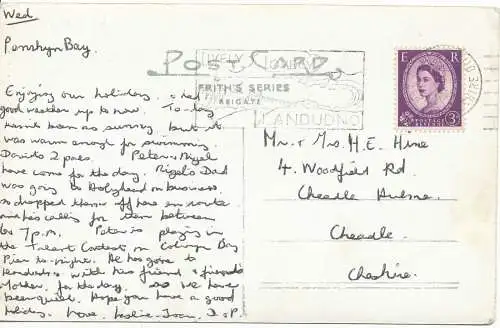 Wed
Penrhyn Bay.
POST CARD
LIVELY
FRITH'S SERIES
REIGATE
LLANDUDNO
E R
POSTAGE
REVENUE
3D
Enjoying our holiday & had
good weather up to now. To-day
hasn't been so sunny but it
was warm enough for swimming
2 paes. Peter & Nigel
have come for the day. Nigel's Dad
was going to Holyhead on business,
so dropped them off here en route
and he's calling for them between
6 & 7 p.m. Peter is playing in
the Talent Contest on Colwyn Bay
Pier to-night. He has gone to
Llandudno with his friend & friend's
Mother, for the day. So we have
been quiet. Hope you have a good
holiday. Love, Leslie, Joan, D & P.
Mr & Mrs H.E. Hine
4. Woodfield Rd
Cheadle Hulme.
Cheadle.
Cheshire.